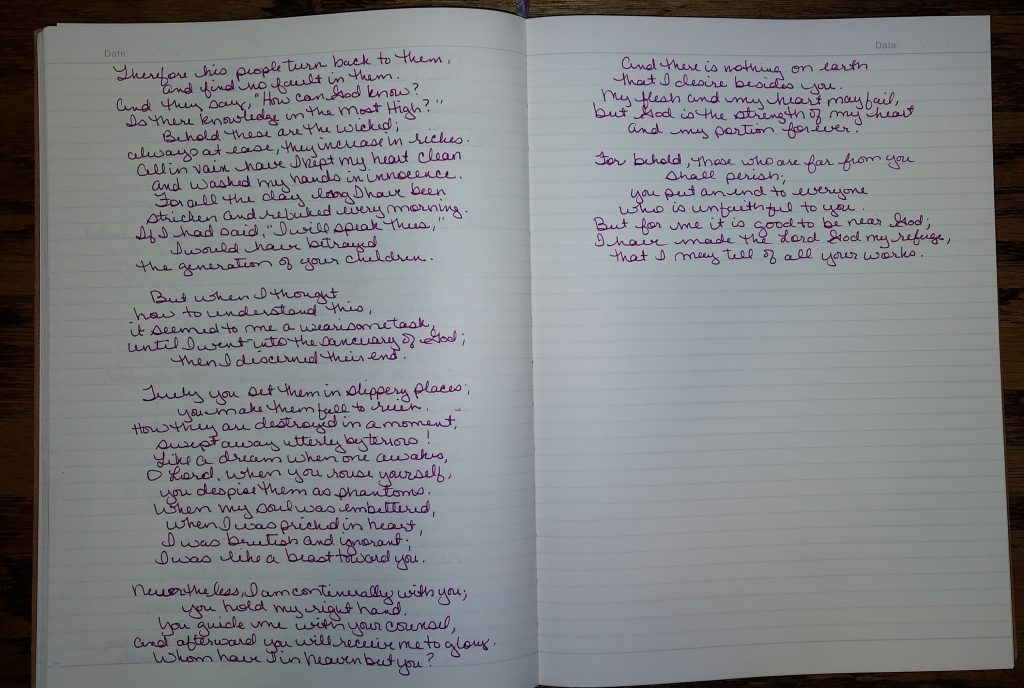 Date:
Therefore his people turn back to them,
and find no fault in them.
And they say, "How can God know?
Is there knowledge in the Most High?"
Behold these are the wicked;
always at ease, they increase in riches.
All in vain have I kept my heart clean
and washed my hands in innocence.
For all the day long I have been
stricken and rebuked every morning.
If I had said, "I will speak thus,"
I would have betrayed
the generation of your children.
But when I thought
how to understand this,
it seemed to me a wearisome task,
until I went into the sancuary of God;
then I discerned their end.
Truly you set them in slippery places;
you make them fall to ruin.
How they are destroyed in a moment,
swept away utterly by terrors!
Like a dream when one awakes,
O Lord, when you rouse yourself,
you despise them as phantoms.
When my soul was embittered,
when I was pricked in heart,
I was brutish and ignorant;
I was like a beast toward you.
Nevertheless, I am continually with you;
you hold my right hand.
You guide me with your counsel,
and afterward you will receive me to glory.
Whom have I in heaven but you?
Date:
And there is nothing on earth
that I desire besides you.
My flesh and my heart may fail,
but God is the strength of my heart
and my portion forever.
For behold, those who are far from you
shall perish;
you put an end to everyone
who is unfaithful to you.
But for me it is good to be near God;
I have made the Lord God my refuge,
that I may tell of all your works.